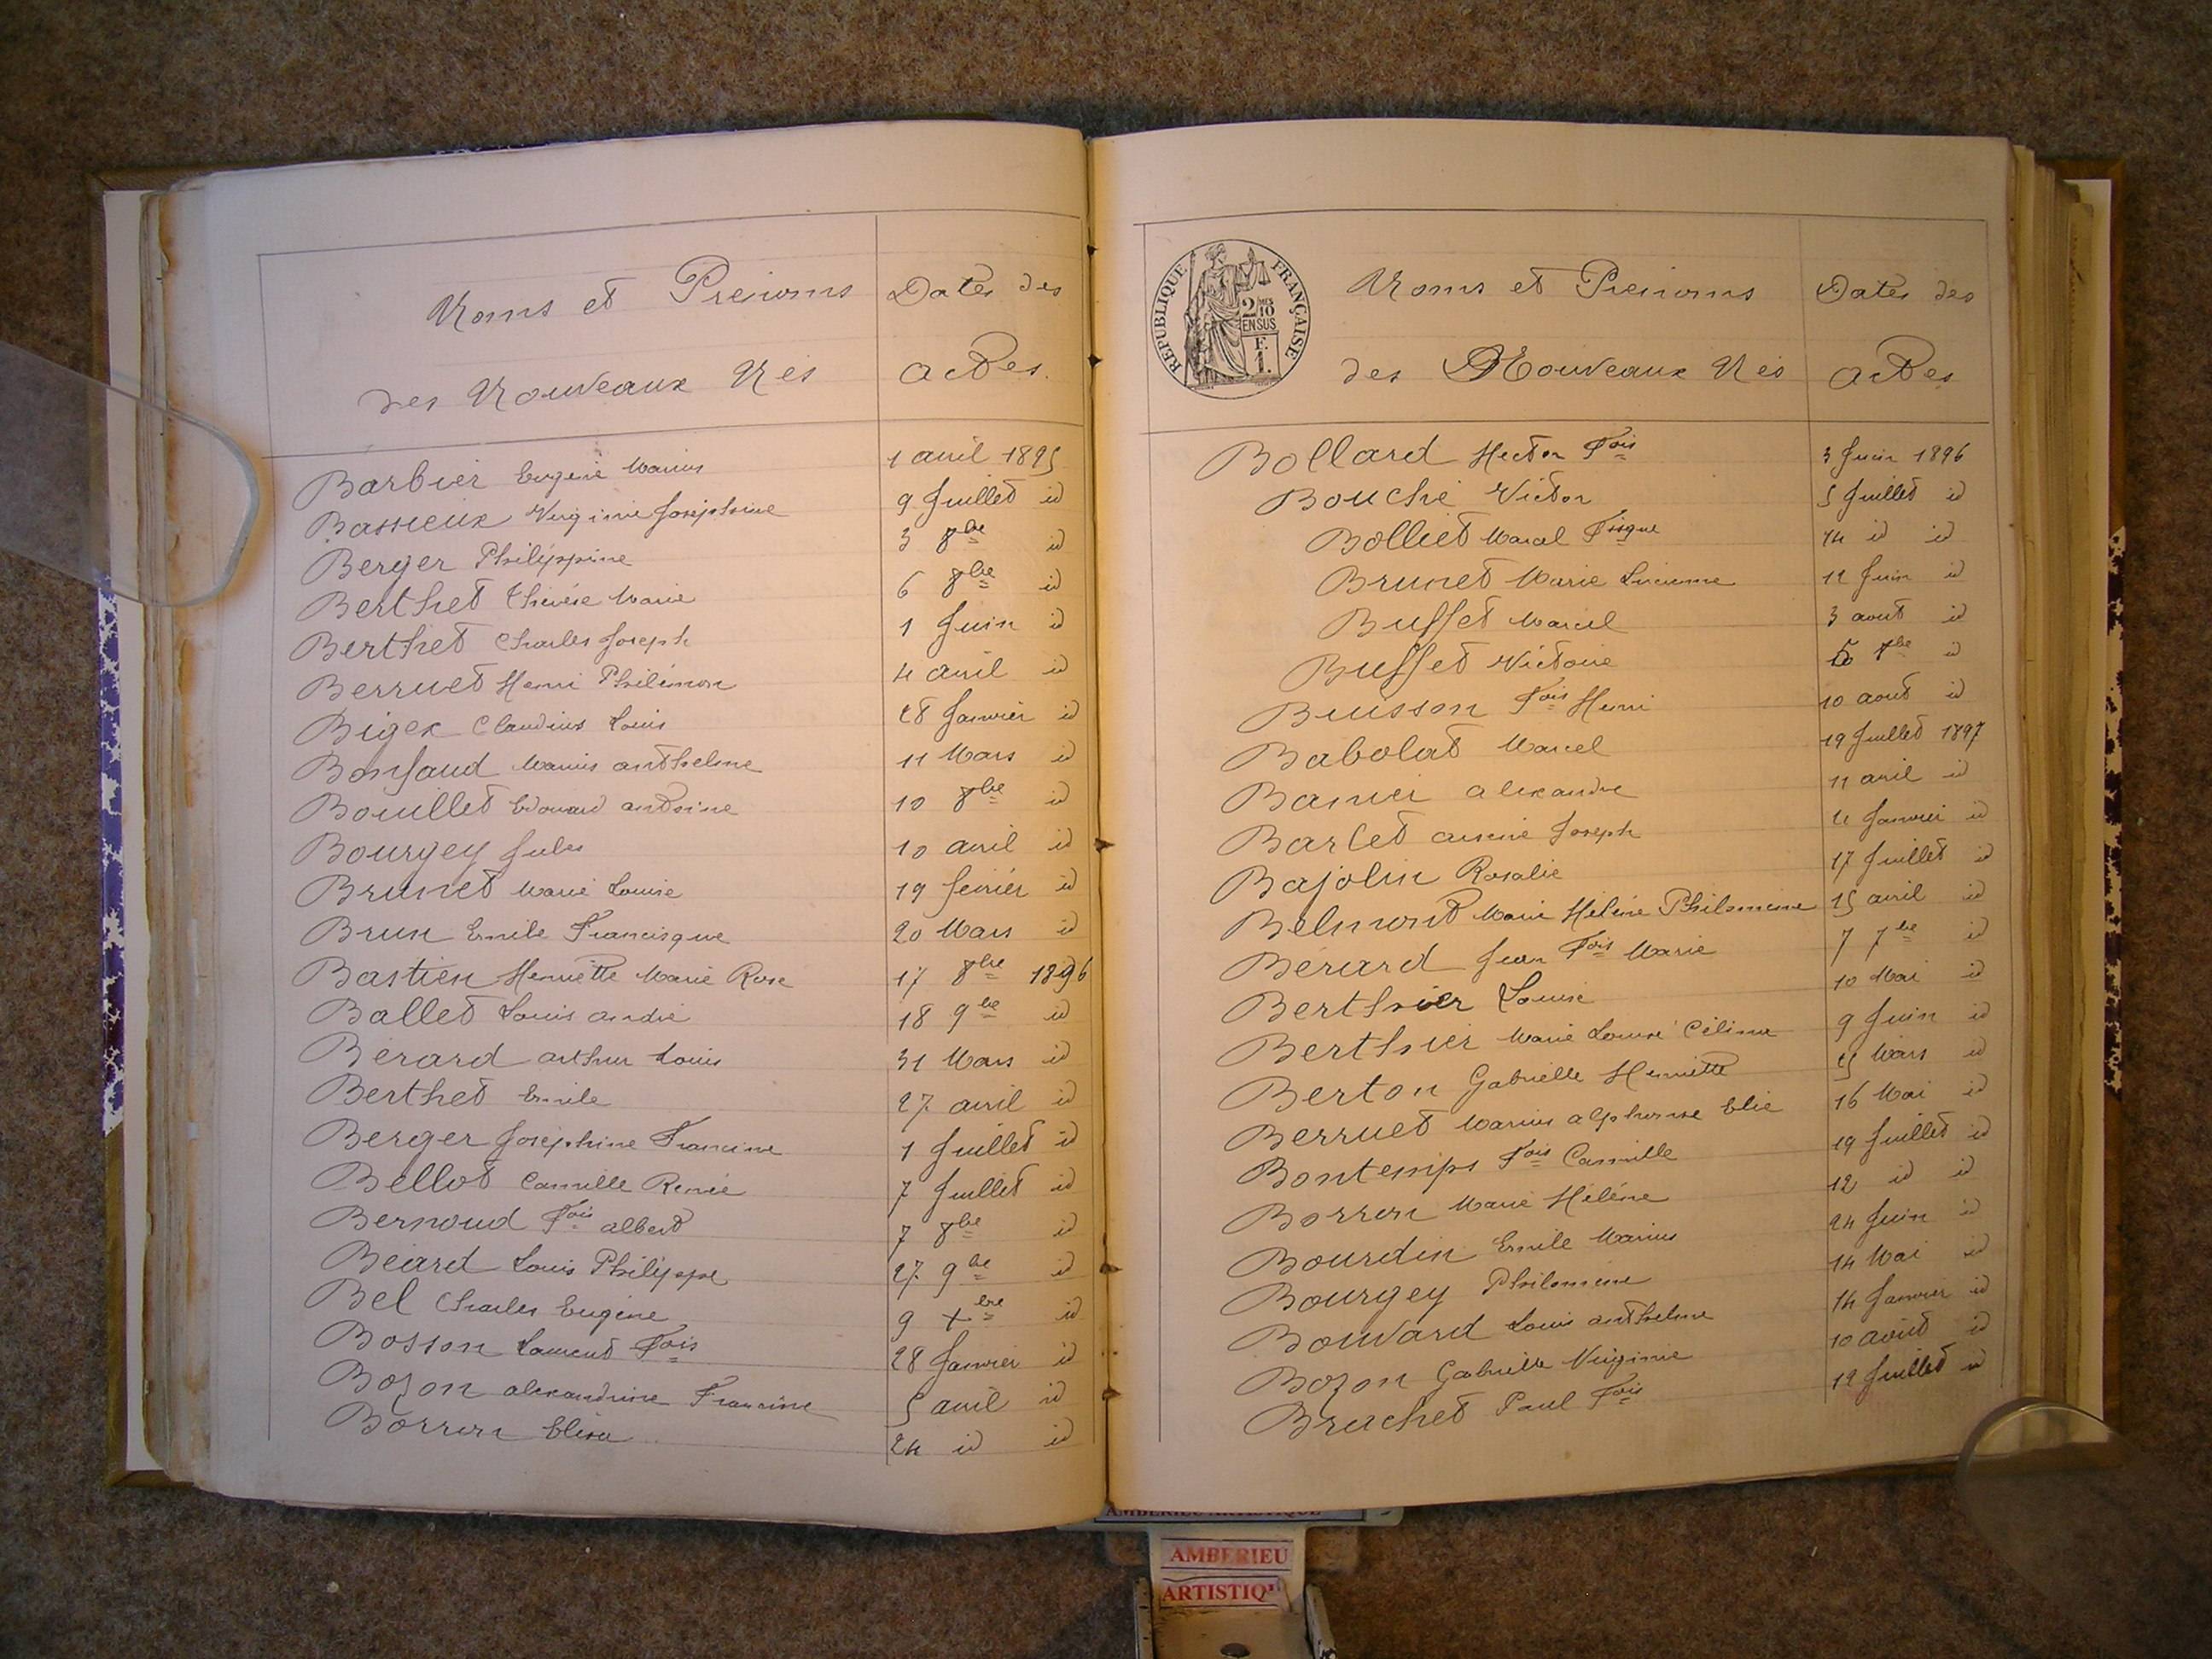 Noms et Prénoms
Dates des
des Nouveaux Nés
Actes.
Barbier Eugène Marius 1 avril 1895
Bassieux Virginie Joséphine 9 Juillet id
Berger Philippine 3 8bre id
Berthet Thérèse Marie 6 8bre id
Berthet Charles Joseph 1 Juin id
Berruet Henri Philémon 4 avril id
Bigex Claudius Louis 28 Janvier id
Bonfaud Marius anthelme 11 Mars id
Bouillet Edouard antoine 10 8bre id
Bourgey Jules 10 avril id
Brunet Marie Louise 19 février id
Brun Emile Francisque 20 Mars id
Bastien Henriette Marie Rose 17 8bre 1896
Ballet Louis andré 18 9bre id
Bérard arthur Louis 31 Mars id
Berthet Emile 27 avril id
Berger Joséphine Francine 1 Juillet id
Bellot Camille Renée 7 Juillet id
Bernoud Fois albert 7 8bre id
Béard Louis Philippe 27 9bre id
Bel Charles Eugène 9 Xbre id
Bosson Laurent Fois 28 Janvier id
Bozon alexandrine Francine 5 avril id
Borron Elisa 24 id id
REPUBLIQUE FRANÇAISE
2/10 EN SUS
F. 1.
Noms et Prénoms
Dates des
des Nouveaux Nés
Actes
Bollard Hector Fois 3 Juin 1896
Bouché Victor 5 Juillet id
Bolliet Marcel Fisque 14 id id
Brunet Marie Lucienne 12 Juin id
Buffet Marcel 3 aout id
Buffet Victoire 7bre id
Buisson Fois Henri 10 aout id
Babolat Marcel 19 Juillet 1897
Banier alexandre 11 avril id
Barlet Joseph Janvier id
Bajolin Rosalie 17 Juillet id
Belmont Marie Hélène Philomène 15 avril id
Bérard Jean Fois Marie 7 7bre id
Berthier Louise 10 Mai id
Berthier Marie Louise Célina 9 Juin id
Berton Gabrielle Henriette Mars id
Berruet Marius alphonse Elie 16 Mai id
Bontemps Fois Camille 19 Juillet id
Borron Marie Hélène 12 id id
Bourdin Emile Marius 24 Juin id
Bourgey Philomène 14 Mai id
Bouvard Louis anthelme 14 Janvier id
Bozon Gabrielle Virginie 10 août id
Bruchet Paul Fois 12 Juillet id
AMBERIEU ARTISTIQUE
AMBERIEU
ARTISTIQ